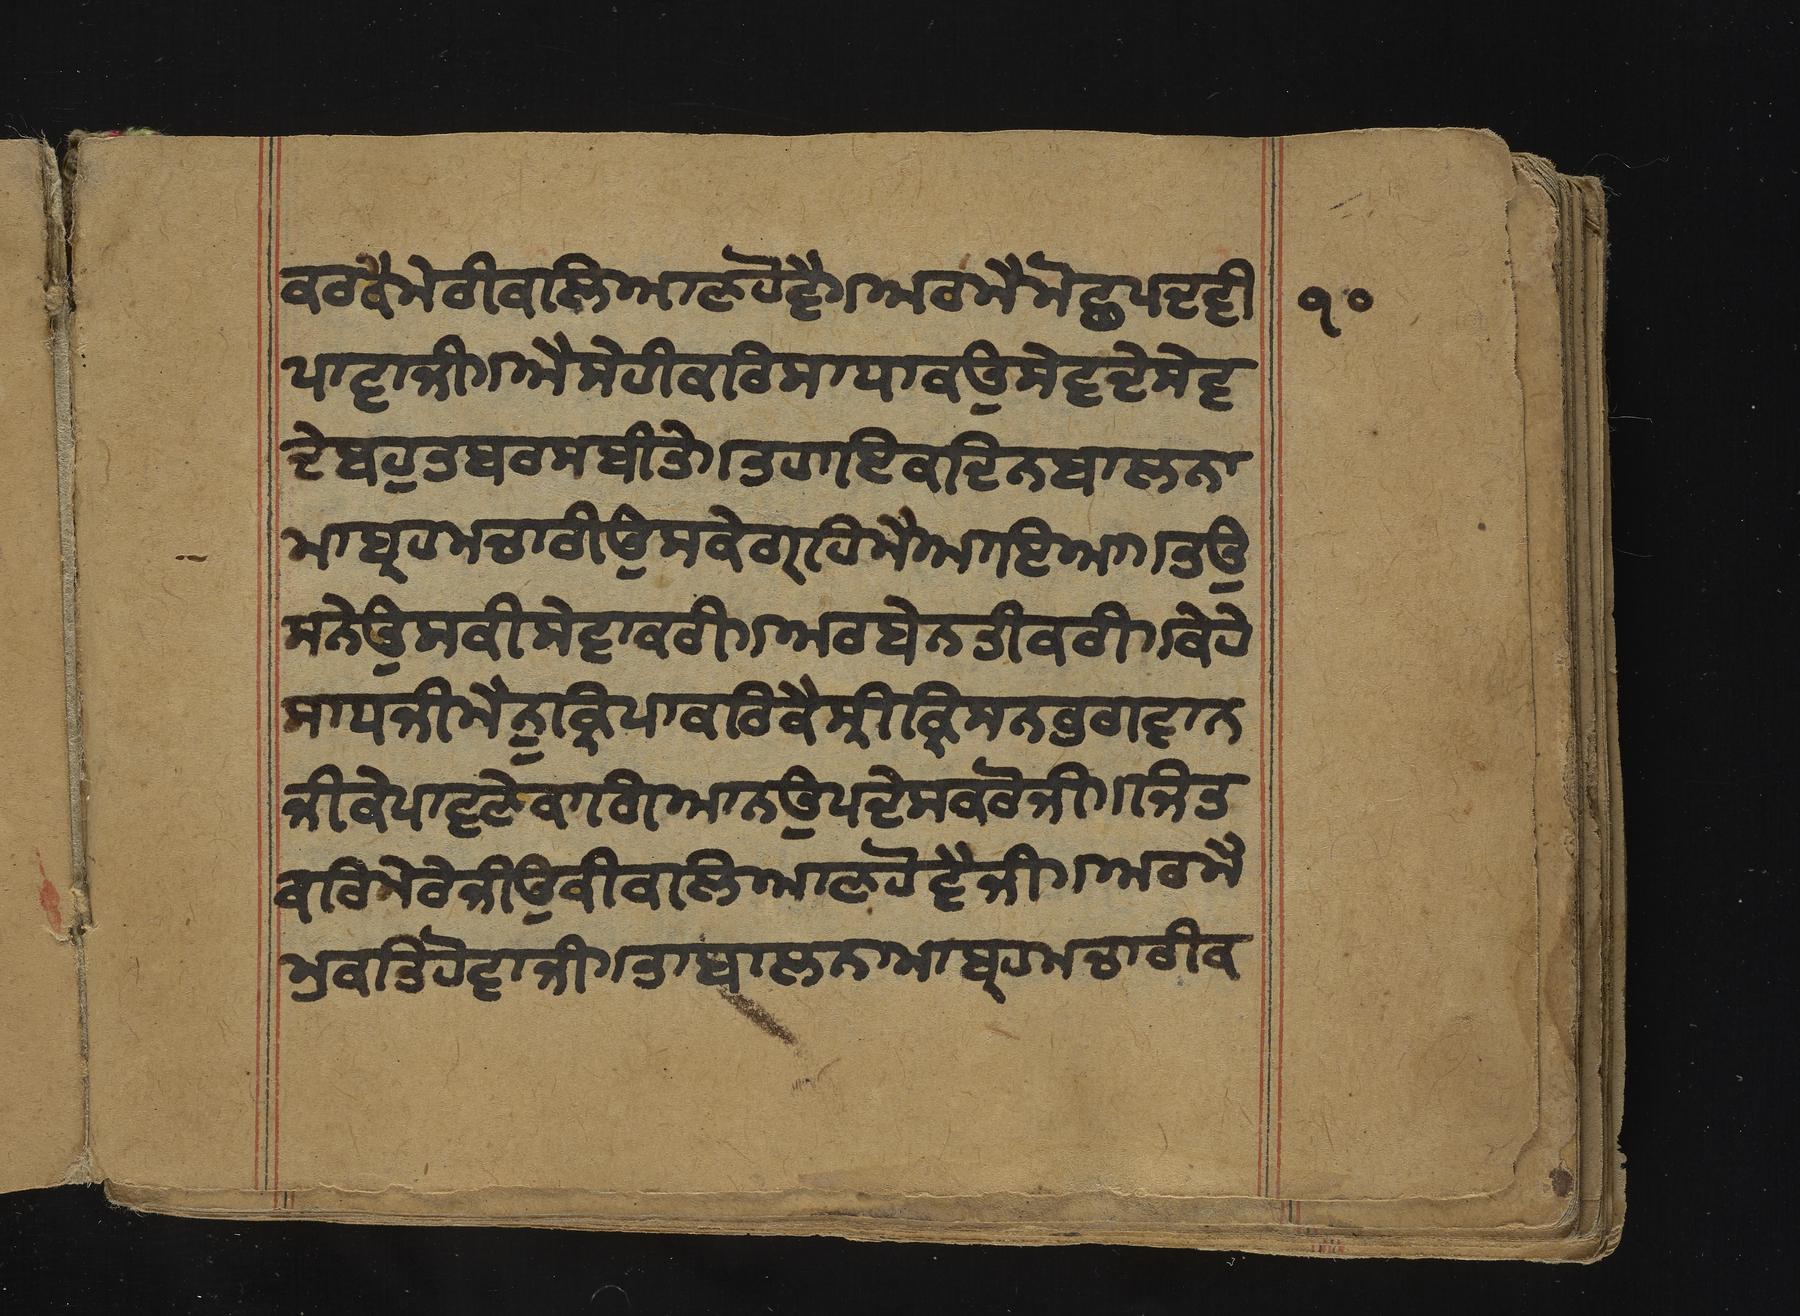 ਕਰਕੈਮੇਰੀਕਲਿਆਣਹੋਵੈ।ਅਰਮੈਮੋਛਪਦਵੀ ੧੦
ਪਾਵਾਜੀ।ਐਸੇਹੀਕਰਿਸਾਧਾਕਉਸੇਵਦੇਸੇਵ
ਦੇਬਹੁਤਬਰਸਬੀਤੇ।ਤਹਾਇਕਦਿਨਬਾਲਨਾ
ਮਾਬ੍ਰਹਮਚਾਰੀਉਸਕੇਗ੍ਰਹਿਮੈਆਇਆ।ਤਉ
ਸਨੇਉਸਕੀਸੇਵਾਕਰੀ।ਅਰਬੇਨਤੀਕਰੀ।ਕੇਹੇ
ਸਾਧਜੀਮੈਨੁਕ੍ਰਿਪਾਕਰਿਕੈਸ੍ਰੀਕ੍ਰਿਸਨਭਗਵਾਨ
ਜੀਕੇਪਾਵਣੇਕਾਗਿਆਨਉਪਦੇਸਕਰੋਜੀ।ਜਿਤ
ਕਰਿਮੇਰੇਜੀਉਕੀਕਲਿਆਣਹੋਵੈਜੀ।ਅਰਮੈ
ਮੁਕਤਿਹੋਵਾਜੀ।ਤਾਬਾਲਨਾਮਾਬ੍ਰਹਮਚਾਰੀਕ